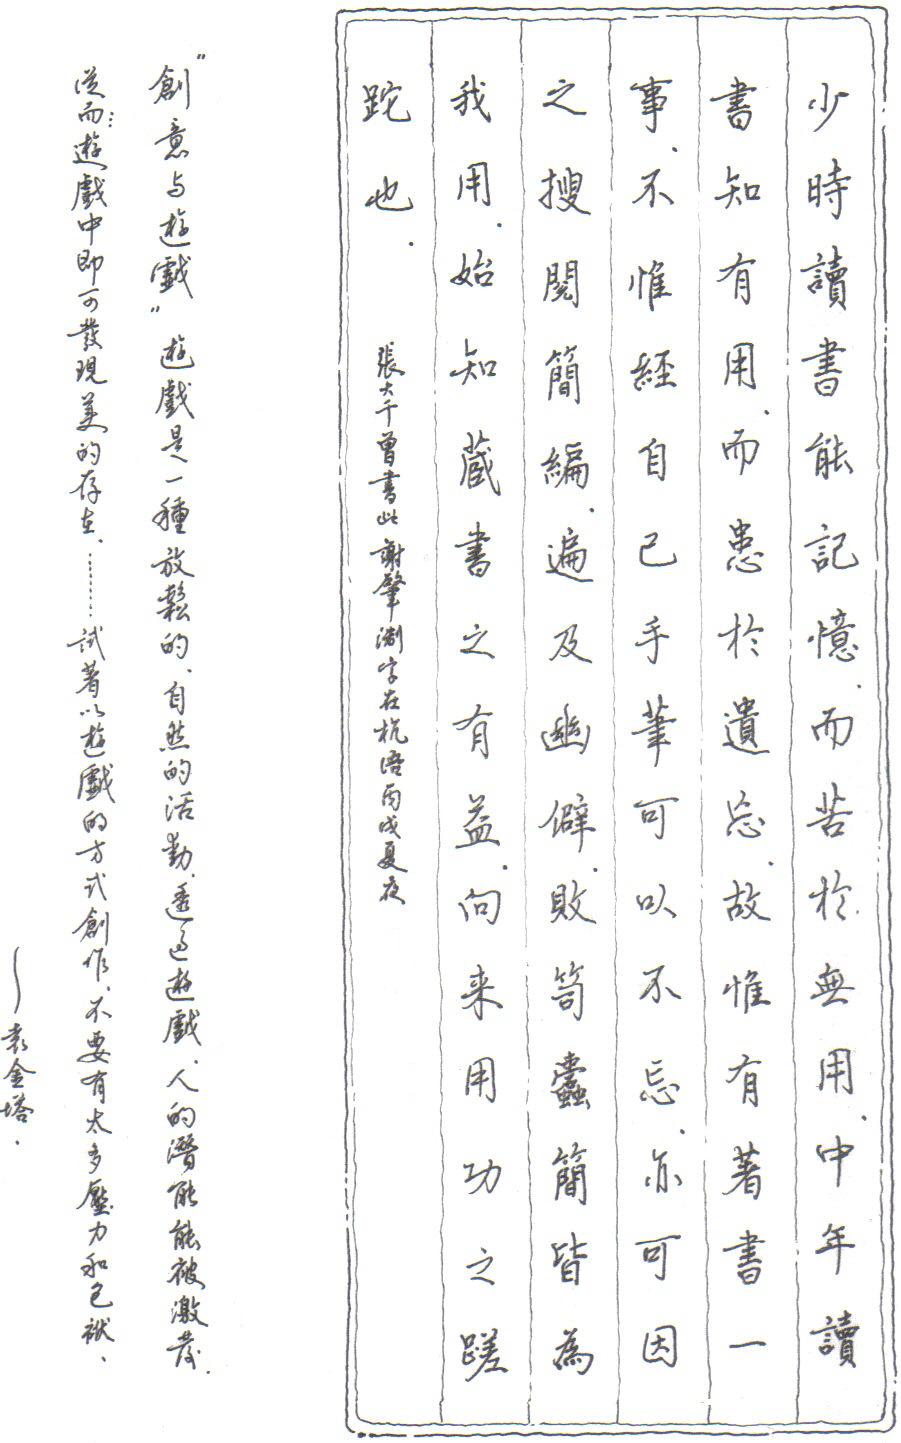 少時讀書能記憶.而苦於無用.中年讀
書知有用.而患於遺忘.故惟有著書一
事.不惟經自己手筆可以不忘.亦可因
之搜閱簡編.遍及幽僻.敗笥蠹簡皆為
我用.始知藏書之有益.向来用功之蹉
跎也.
張大千曾書此 謝肇淛字在杭語丙戌夏夜
“創意与遊戲”遊戲是一種放鬆的、自然的活動、透过遊戲、人的潛能能被激發.
從而…遊戲中即可發現美的存在、………試著以遊戲的方式創作、不要有太多壓力和包袱、
——袁金塔.